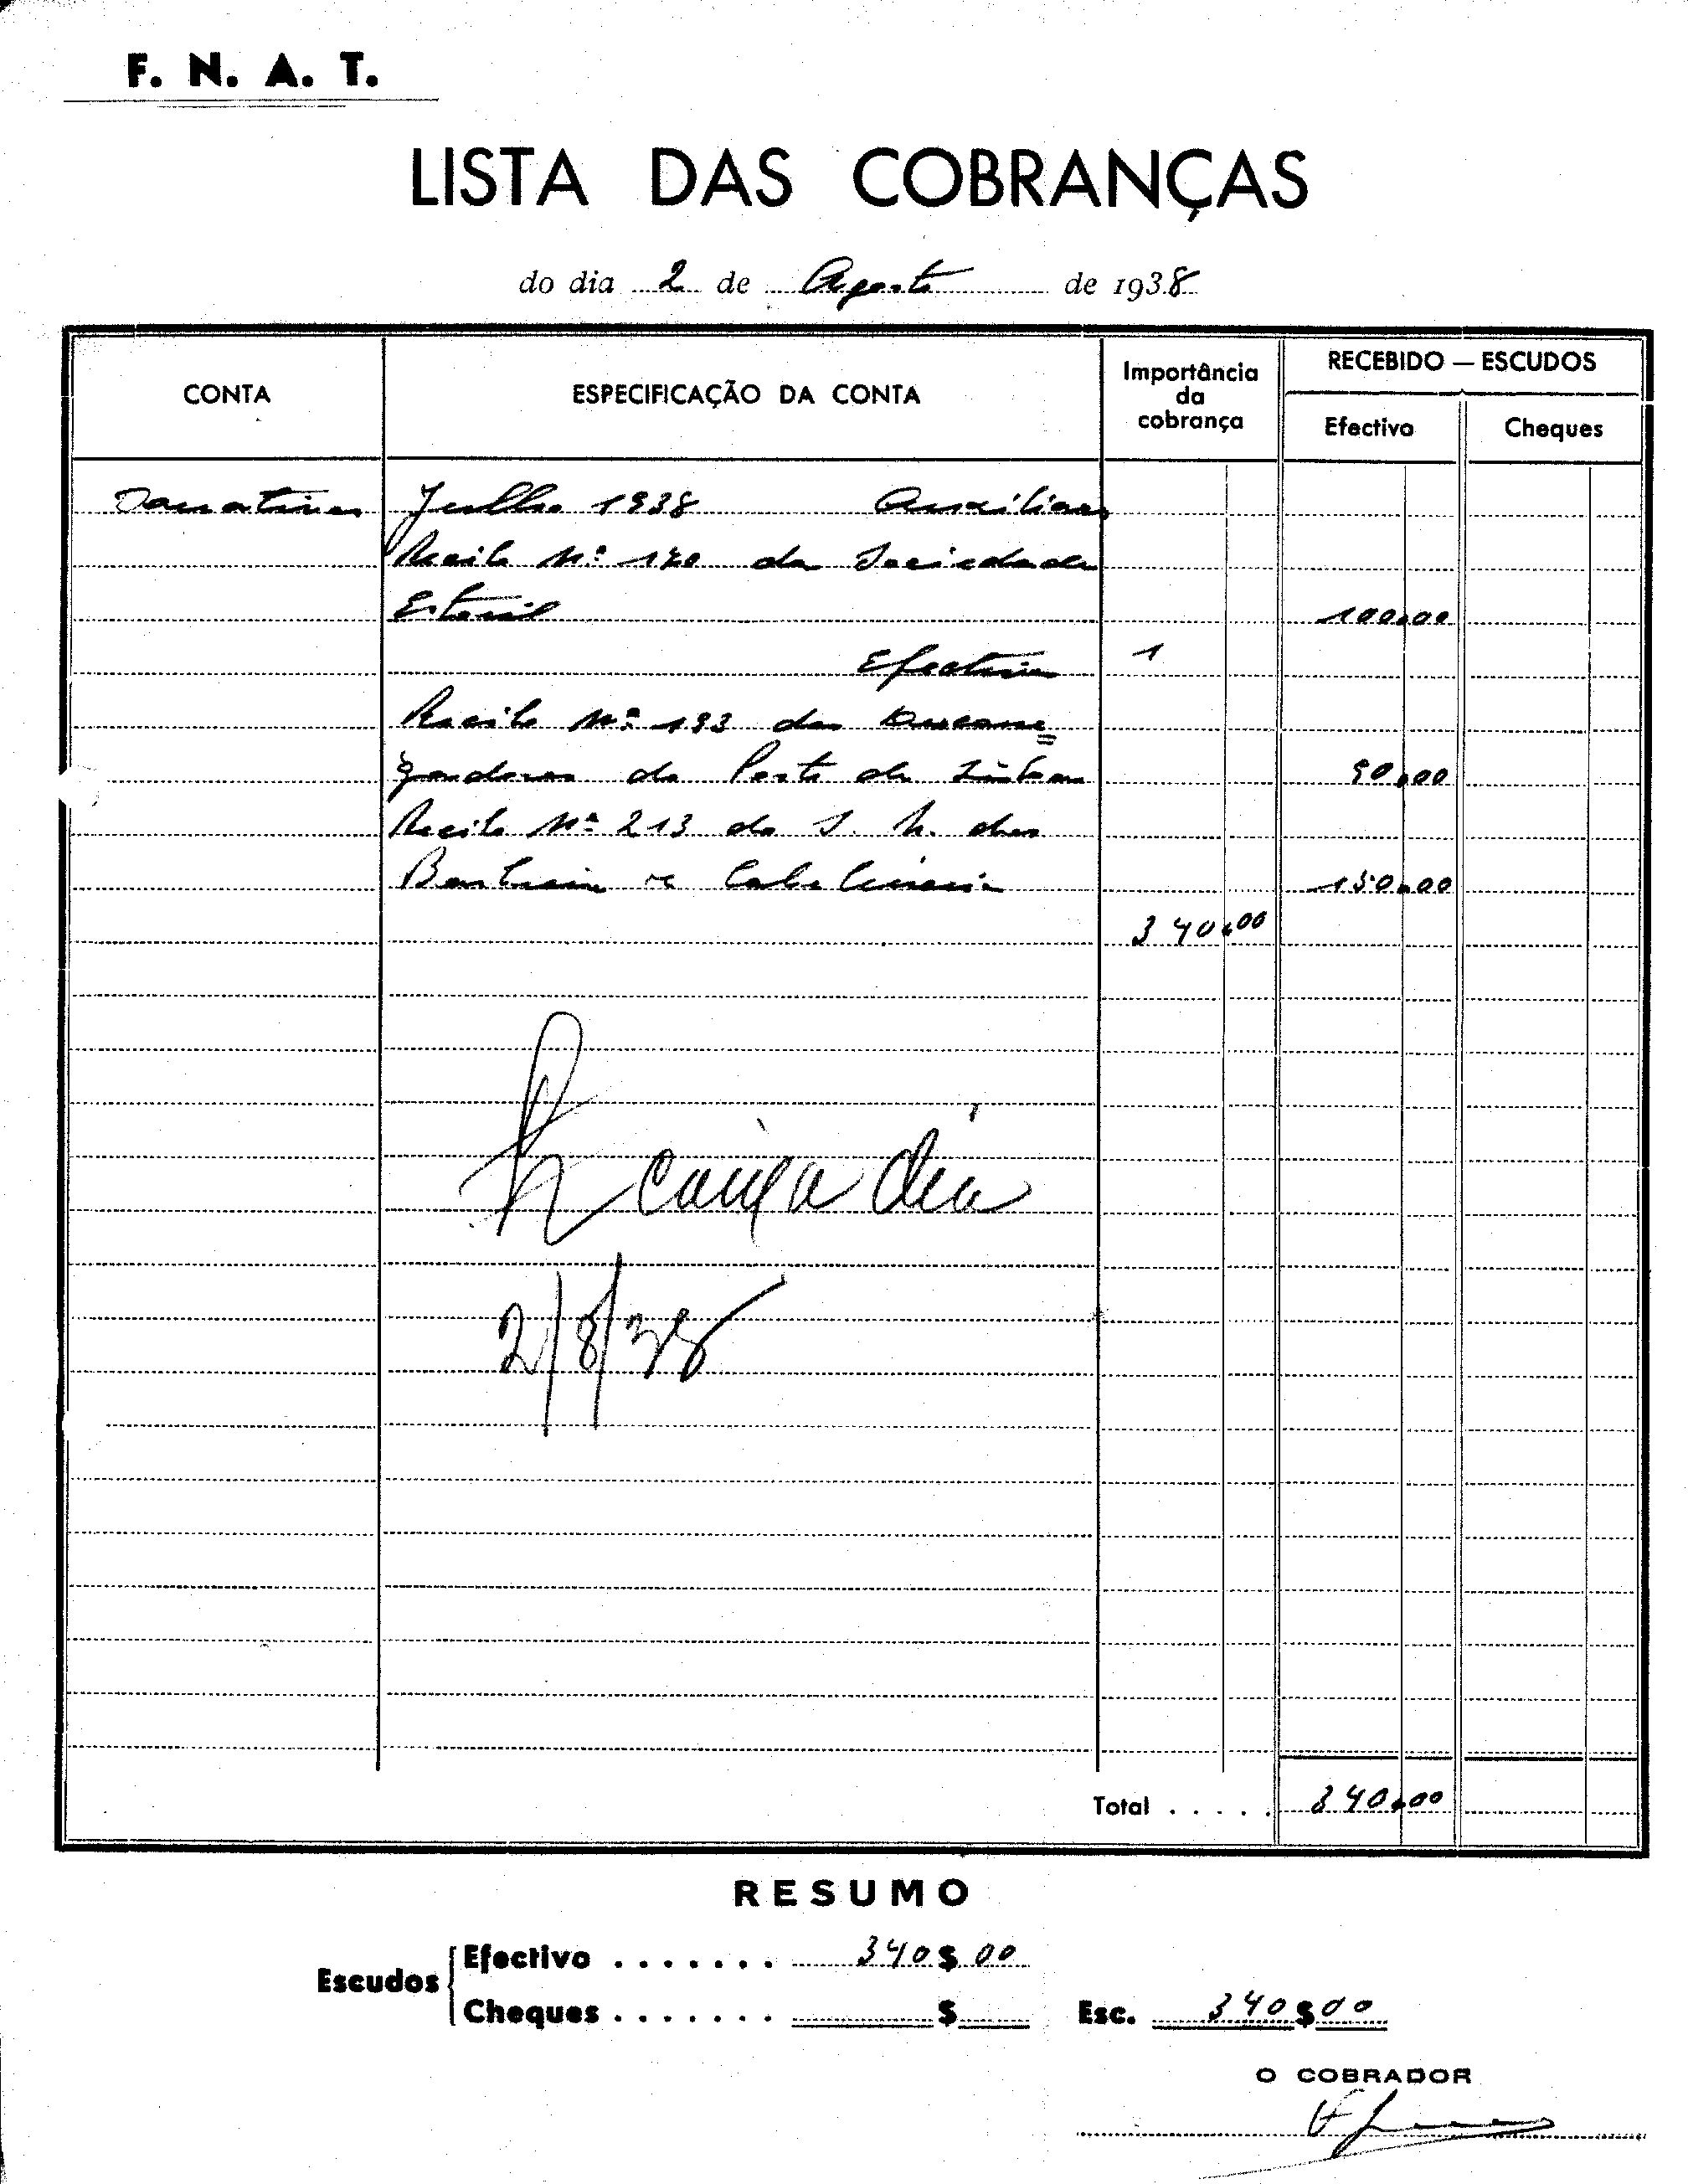 F. N. A. T.
LISTA DAS COBRANÇAS
do dia 2 de Agosto de 1938
CONTA
ESPECIFICAÇÃO DA CONTA
Importância
da
cobrança
RECEBIDO — ESCUDOS
Efectivo
Cheques
Donativos Julho 1938 Auxiliares
Recibo Nº 120 da Sociedade
Estoril 100,00
Efectivos 1
Recibo Nº 193 dos
do Porto de Lisboa 90,00
Recibo Nº 213 do S. N. dos
Barbeiros e Cabeleireiros 150,00
340,00
caixa dia
2/8/38
Total . . . . . 340,00
RESUMO
Escudos
Efectivo . . . . . . . 340$00
Cheques . . . . . . . $
Esc. 340$00
O COBRADOR